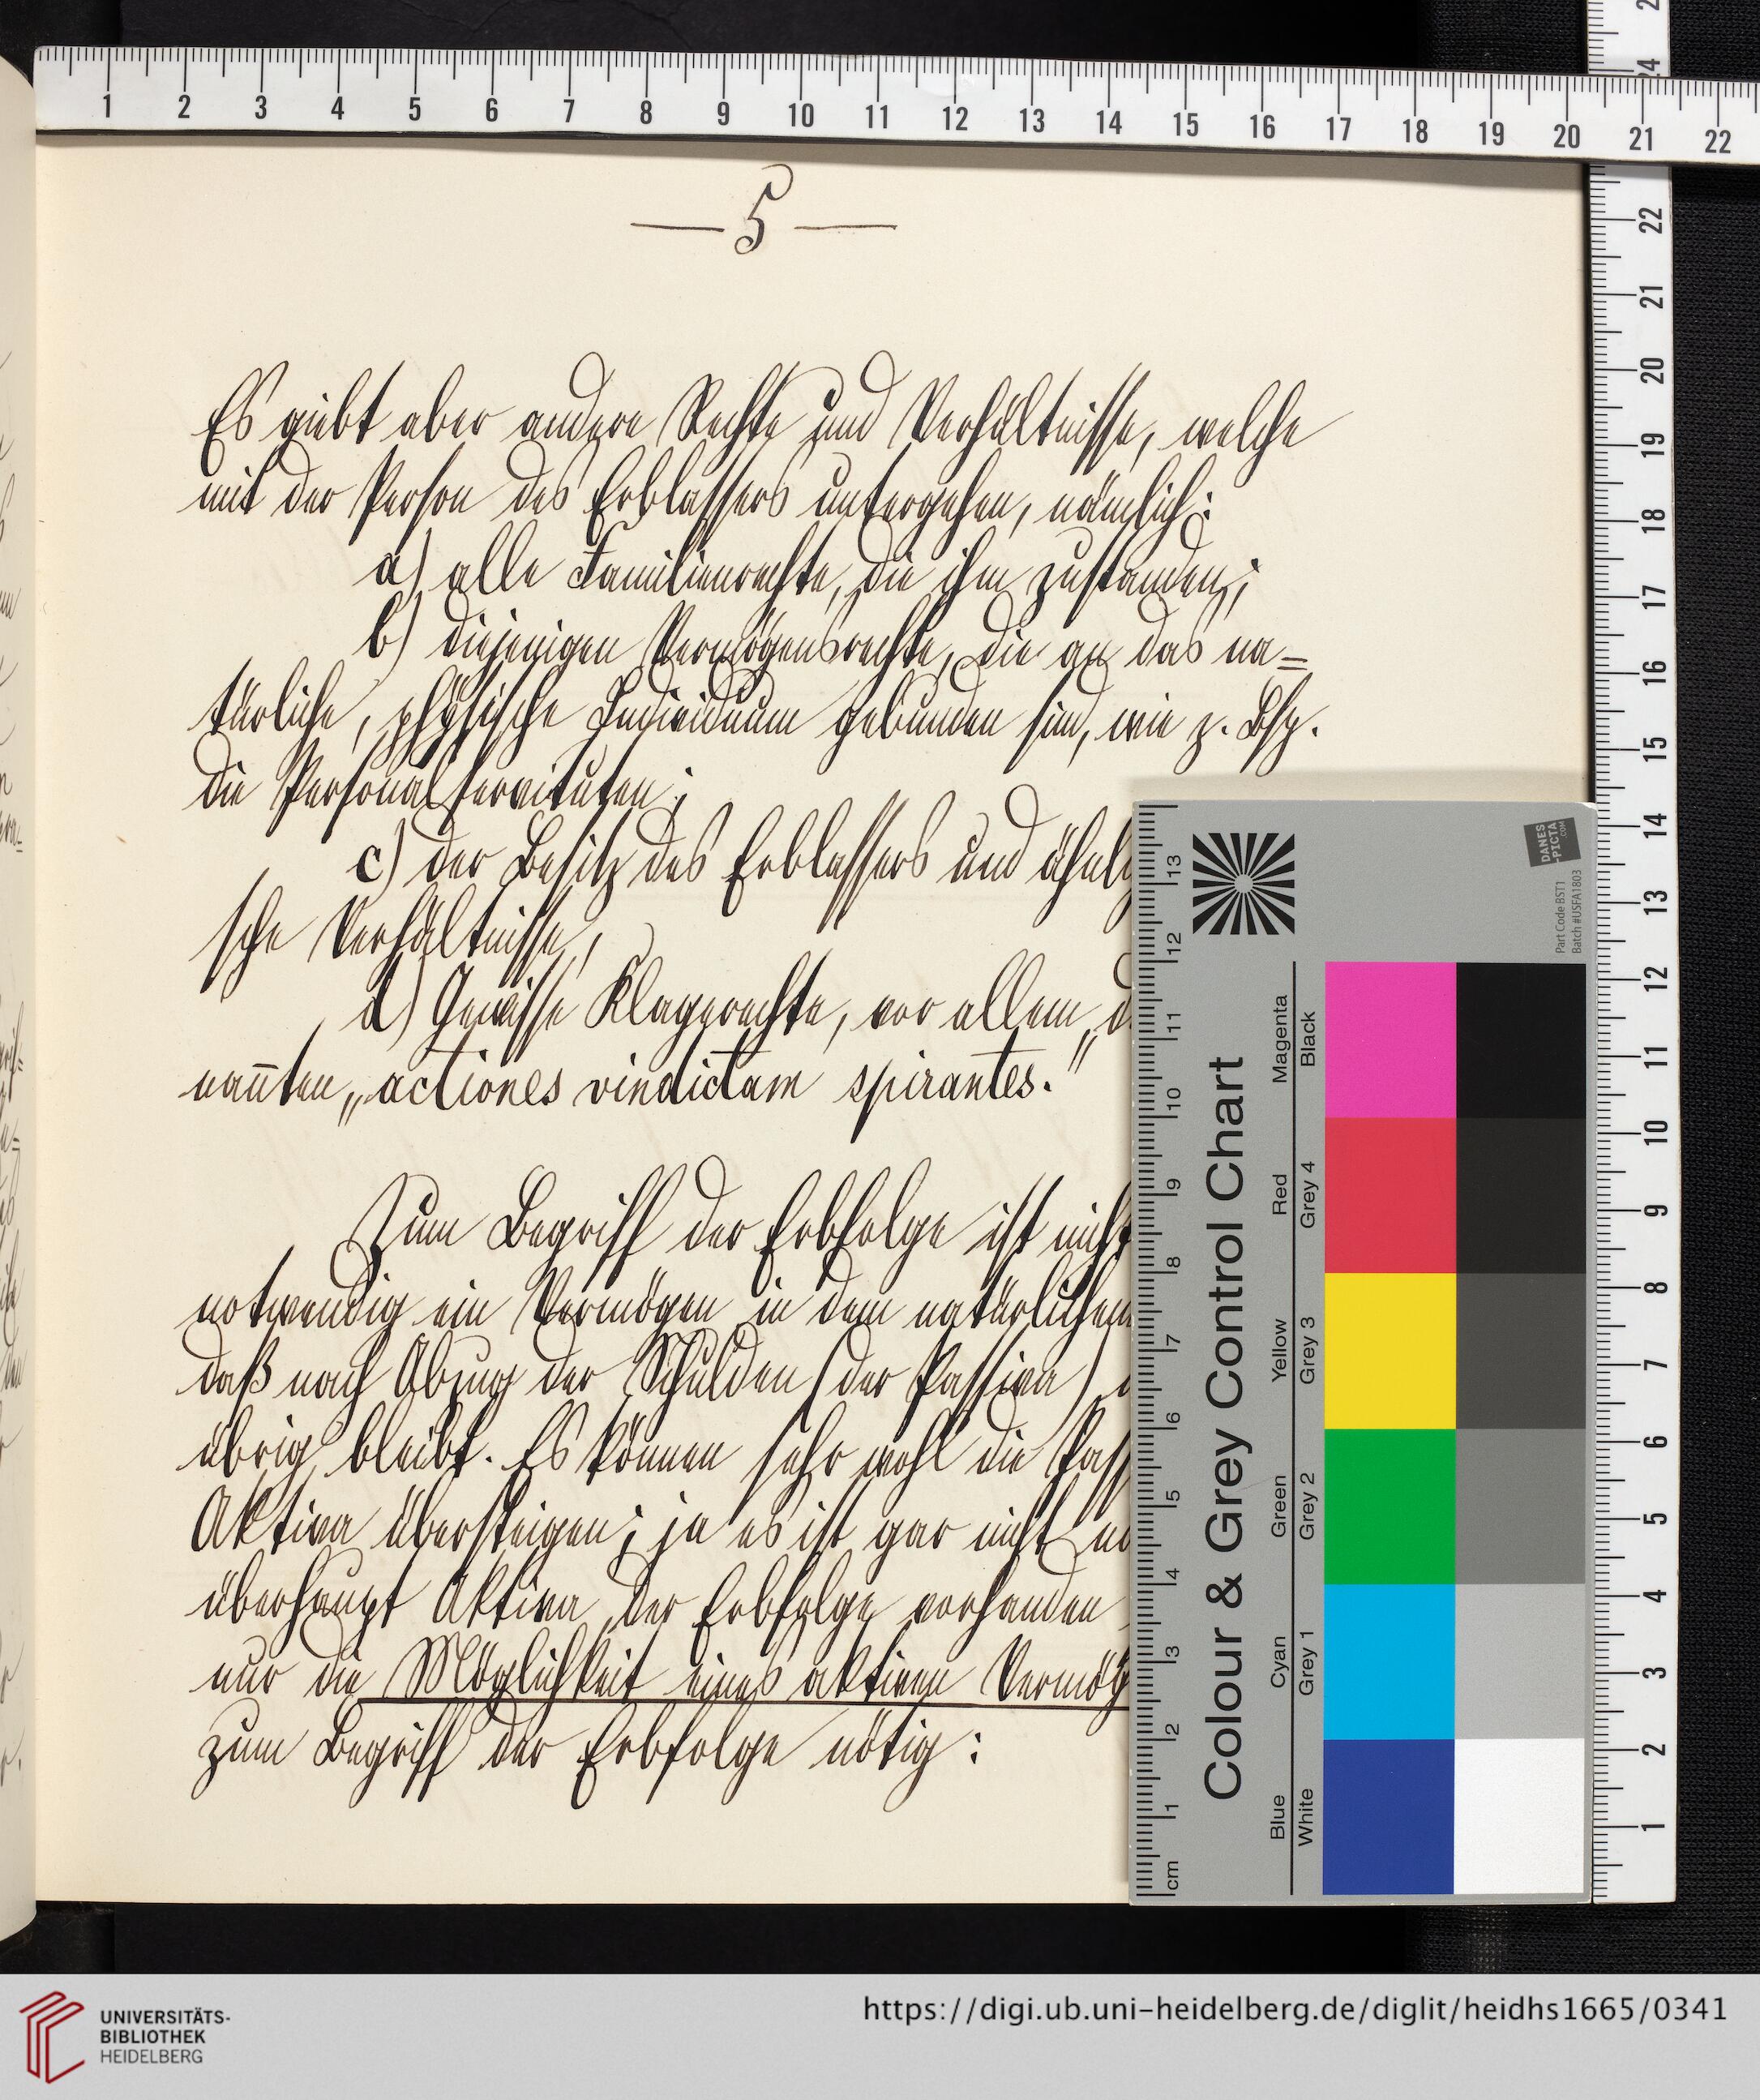 — 5 —
Es giebt aber andere Rechte und Verhältnisse, welche
mit der Person des Erblassers untergehen, nämlich:
a) alle Familienrechte, die ihm zustanden;
b) diejenigen Vermögensrechte, die an das na=
türliche, physische Individuum gebunden sind, wie z. Bsp.
die Personalservituten;
c) der Besitz des Erblassers und
sche Verhältnisse;
d) Gewisse Klagerechte, vor allem
nan̄ten „actiones vindictam spirantes.“
Zum Begriff der Erbfolge ist nicht
notwendig ein Vermögen in dem natürlichen
daß nach Abzug der Schulden (der Passiva)
übrig bleibt. Es können sehr wohl die Pass
Aktiva übersteigen; ja es ist gar nicht
überhaupt Aktiva der Erbfolge vorhanden
nur die Möglichkeit eines aktiven Vermög
zum Begriff der Erbfolge nötig:
1 2 3 4 5 6 7 8 9 10 11 12 13 14 15 16 17 18 19 20 21 22
24
22
21
20
19
18
17
16
15
14
13
12
11
10
9
8
7
6
5
4
3
2
1
Colour & Grey Control Chart
Blue Cyan Green Yellow Red Magenta
White Grey 1 Grey 2 Grey 3 Grey 4 Black
cm 1 2 3 4 5 6 7 8 9 10 11 12 13
DANES
-PICTA
.COM
Part Code BST1
Batch #USFA1803
UNIVERSITÄTS-
BIBLIOTHEK
HEIDELBERG
https://digi.ub.uni-heidelberg.de/diglit/heidhs1665/0341